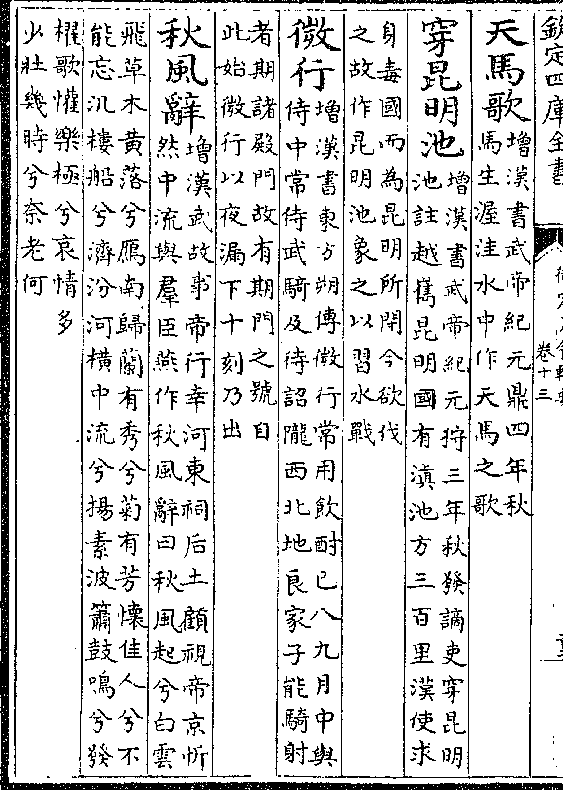 欽定四庫全書
卷十三
天馬歌
增漢書武帝紀元鼎四年秋
馬生渥洼水中作天馬之歌
穿昆明池
增漢書武帝紀元狩三年秋發謫吏穿昆明
池註越嶲昆明國有滇池方三百里漢使求
身毒國而為昆明所閉今欲伐
之故作昆明池象之以習水戰
微行
增漢書東方朔傳微行常用飲酎已八九月中與
侍中常侍武騎及待詔隴西北地良家子能騎射
者期諸殿門故有期門之號自
此始微行以夜漏下十刻乃出
秋風辭
增漢武故事帝行幸河東祠后土顧視帝京忻
然中流與羣臣燕作秋風辭曰秋風起兮白雲
飛草木黃落兮鴈南歸蘭有秀兮菊有芳懷佳人兮不
能忘汎樓船兮濟汾河橫中流兮揚素波簫鼓鳴兮發
櫂歌懽樂極兮哀情多
少壯幾時兮奈老何